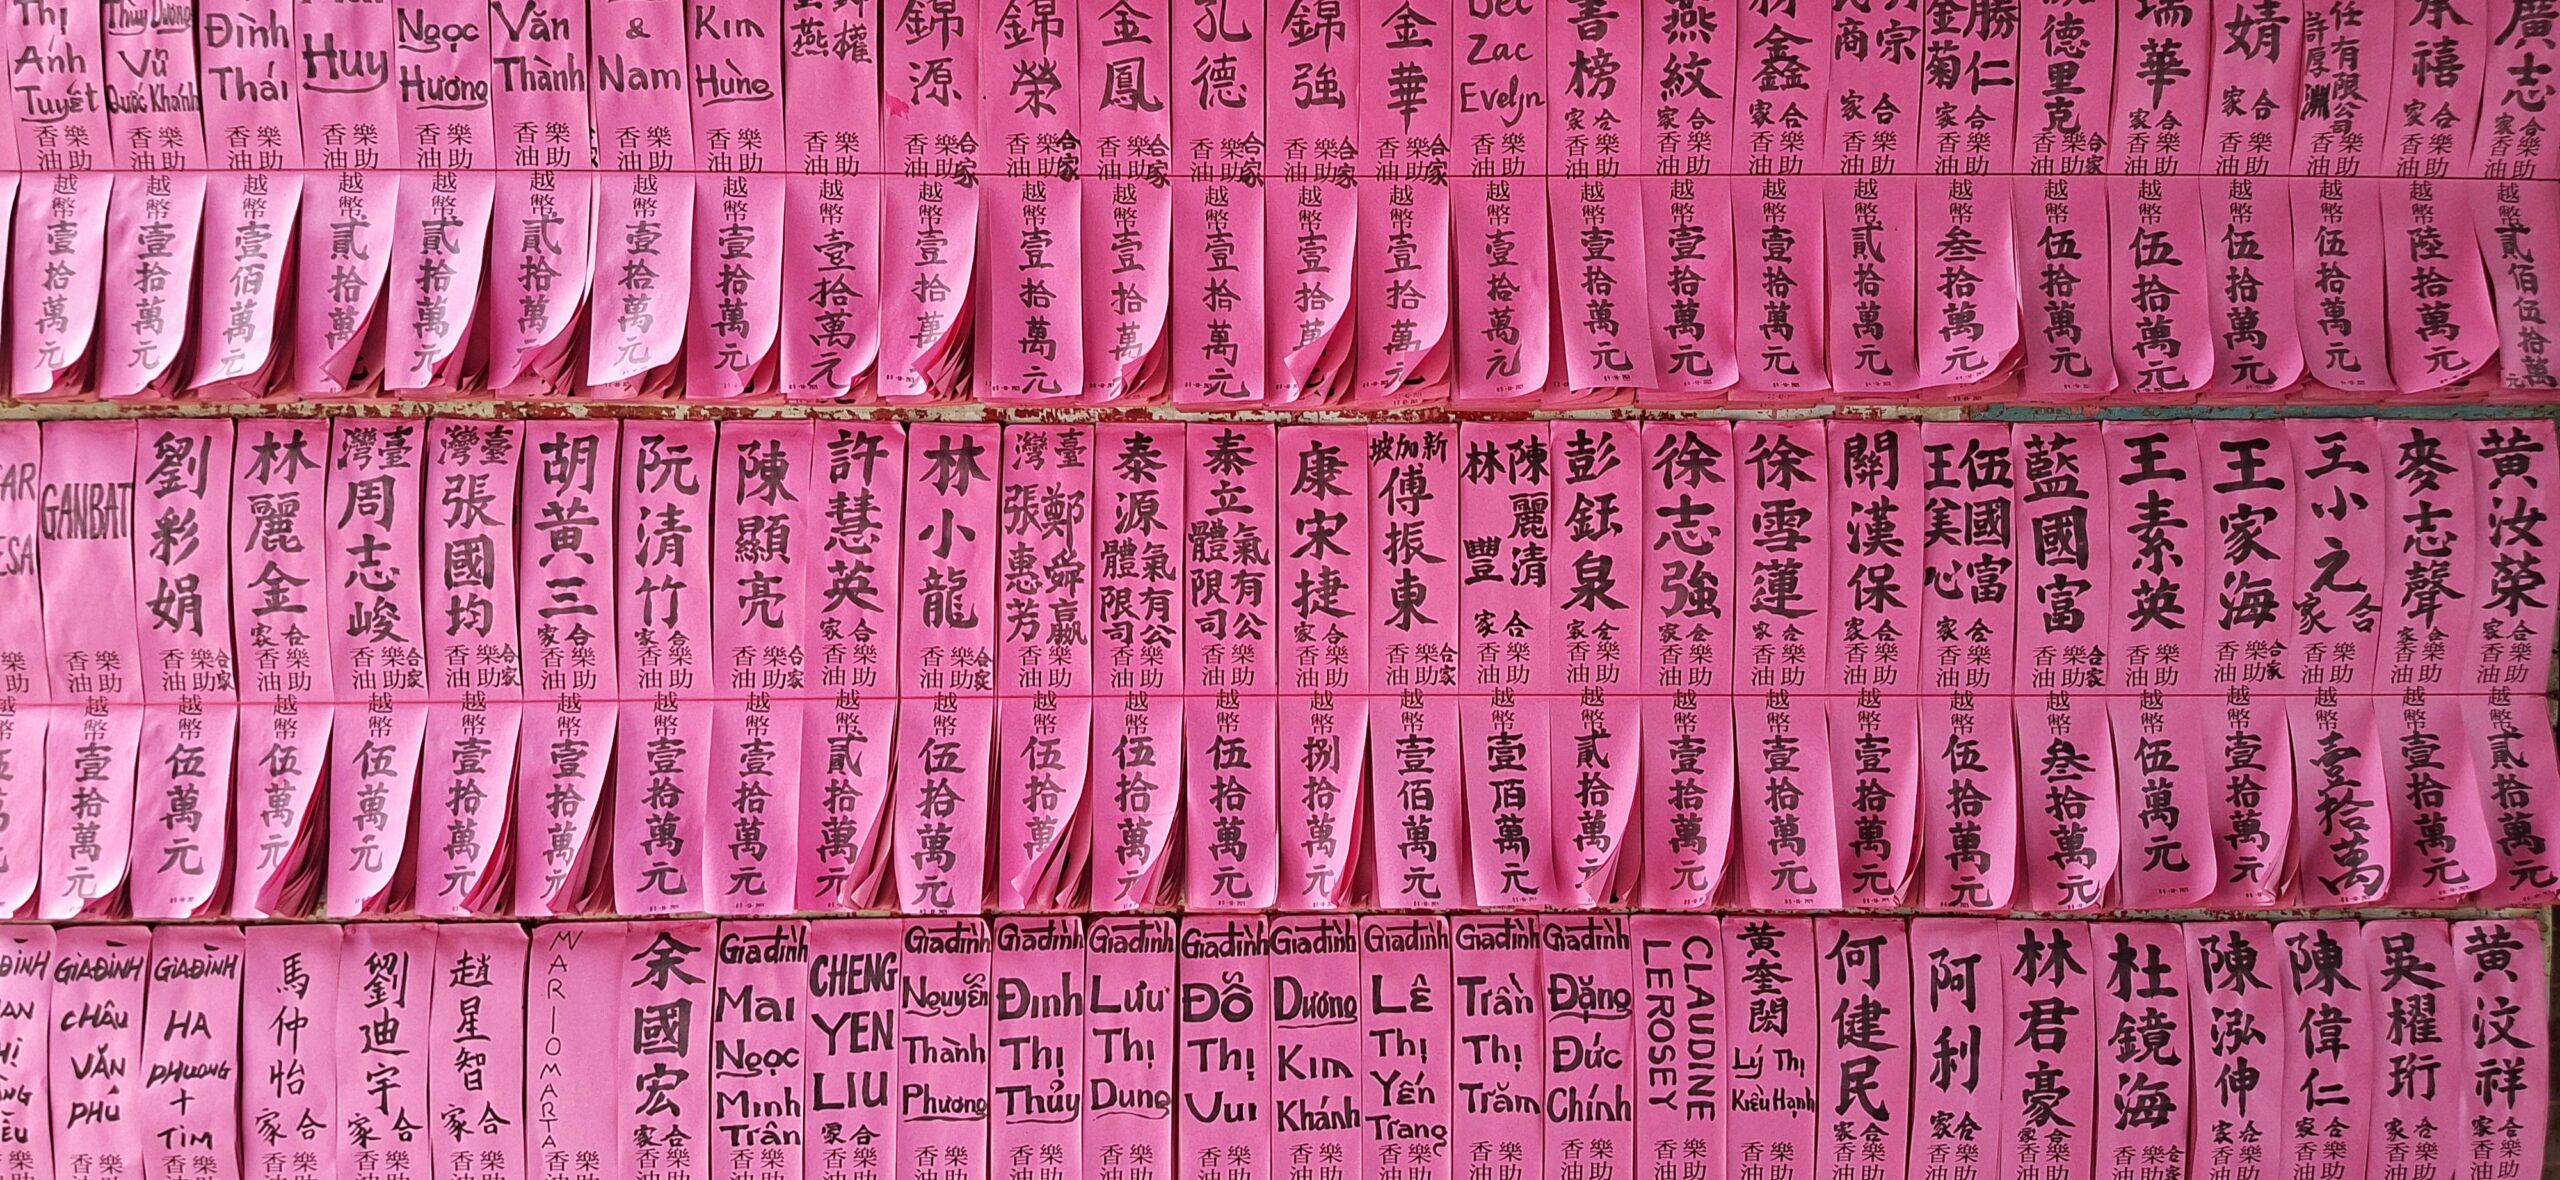 Thị
Ánh
Tuyết
樂助
香油
越幣壹拾萬元
Thùy Dương
Vũ
Quốc Khánh
樂助
香油
越幣壹拾萬元
Đình
Thái
樂助
香油
越幣壹佰萬元
Huy
樂助
香油
越幣貳拾萬元
Ngọc
Hương
樂助
香油
越幣貳拾萬元
Văn
Thành
樂助
香油
合家
越幣貳拾萬元
&
Nam
樂助
香油
越幣壹拾萬元
Kim
Hùng
樂助
香油
越幣壹拾萬元
權
燕
樂助
香油
越幣壹拾萬元
錦源
合家
樂助
香油
越幣壹拾萬
錦榮
合家
樂助
香油
越幣壹拾萬元
金鳳
合家
樂助
香油
越幣壹拾萬元
孔德
合家
樂助
香油
越幣壹拾萬元
錦強
合家
樂助
香油
越幣壹拾萬元
金華
合家
樂助
香油
越幣壹拾萬元
Dec
Zac
Evelyn
樂助
香油
越幣壹拾萬元
書榜
合家
樂助
香油
越幣壹拾萬元
燕紋
合家
樂助
香油
越幣壹拾萬元
金鑫
合家
樂助
香油
越幣壹拾萬元
宗
商
合家
樂助
香油
越幣貳拾萬元
勝仁
金菊
合家
樂助
香油
越幣叁拾萬元
德里克
合家
樂助
香油
越幣伍拾萬元
瑞華
合家
樂助
香油
越幣伍拾萬元
婧
合家
樂助
香油
越幣伍拾萬元
任有限公司
許厚淵
樂助
香油
越幣伍拾萬元
承禧
合家
樂助
香油
越幣陸拾萬元
廣志
合家
樂助
香油
越幣貳佰伍拾萬元
AR
ESA
樂助
香油
GANBAT
樂助
香油
越幣壹拾萬元
劉彩娟
合家
樂助
香油
越幣伍萬元
林麗金
合家
樂助
香油
越幣伍萬元
臺灣
周志峻
合家
樂助
香油
越幣伍萬元
臺灣
張國均
合家
樂助
香油
越幣壹拾萬元
胡黃三
合家
樂助
香油
越幣壹拾萬元
阮清竹
合家
樂助
香油
越幣壹拾萬元
陳顯亮
合家
樂助
香油
越幣壹拾萬元
許慧英
合家
樂助
香油
越幣貳拾萬元
林小龍
合家
樂助
香油
越幣伍拾萬元
臺灣
鄭舜嬴
張惠芳
樂助
香油
越幣伍拾萬元
泰源氣體有限公司
樂助
香油
越幣伍拾萬元
泰立氣體有限公司
樂助
香油
越幣伍拾萬元
康宋捷
合家
樂助
香油
越幣捌拾萬元
新加坡
傅振東
合家
樂助
香油
越幣壹佰萬元
陳麗清
林豐
合家
樂助
香油
越幣壹佰萬元
彭鈺泉
合家
樂助
香油
越幣貳拾萬元
徐志強
合家
樂助
香油
越幣壹拾萬元
徐雪蓮
合家
樂助
香油
越幣壹拾萬元
關漢保
合家
樂助
香油
越幣壹拾萬元
伍國富
王美心
合家
樂助
香油
越幣伍拾萬元
藍國富
合家
樂助
香油
越幣叁拾萬元
王素英
樂助
香油
越幣伍萬元
王家海
合家
樂助
香油
越幣壹拾萬元
王小之
合家
樂助
香油
越幣壹拾萬
麥志聲
合家
樂助
香油
越幣壹拾萬元
黃汝榮
合家
樂助
香油
越幣貳拾萬元
GIA ĐÌNH
CHÂU
VĂN
PHÚ
樂助
香油
GIA ĐÌNH
HA
PHUONG
+
TIM
樂助
香油
馬仲怡
合家
樂助
香油
劉迪宇
合家
樂助
香油
趙星智
合家
樂助
香油
MARIOMARTA
樂助
香油
余國宏
合家
樂助
香油
Gia đình
Mai
Ngọc
Minh
Trân
樂助
香油
CHENG
YEN
LIU
合家
樂助
香油
Gia đình
Nguyễn
Thành
Phương
樂助
香油
Gia đình
Đinh
Thị
Thủy
樂助
香油
Gia đình
Lưu
Thị
Dung
樂助
香油
Gia đình
Đỗ
Thị
Vui
樂助
香油
Gia đình
Dương
Kim
Khánh
樂助
香油
Gia đình
Lê
Thị
Yến
Trang
樂助
香油
Gia đình
Trần
Thị
Trăm
樂助
香油
Gia đình
Đặng
Đức
Chính
樂助
香油
CLAUDINE
LEROSEY
樂助
香油
黃奎閎
Lý Thị
Kiều Hạnh
樂助
香油
何健民
合家
樂助
香油
阿利
合家
樂助
香油
林君豪
合家
樂助
香油
杜鏡海
合家
樂助
香油
陳泓伸
合家
樂助
香油
陳偉仁
合家
樂助
香油
吳櫂珩
合家
樂助
香油
黃汶祥
合家
樂助
香油